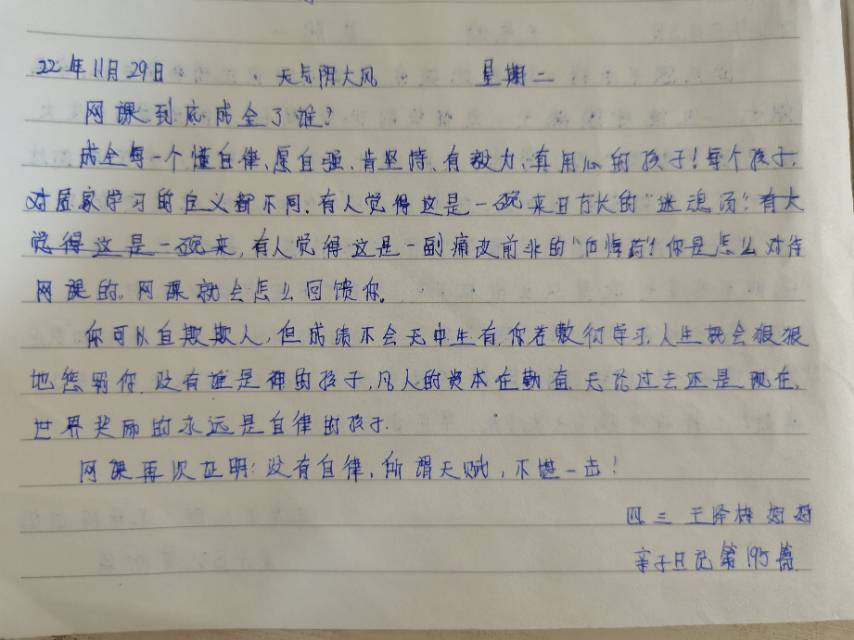 22年11月29日 天气阴大风 星期二
网课到底成全了谁?
成全每一个懂自律、愿自强、肯坚持、有毅力、真用心的孩子!每个孩子,
对居家学习的定义都不同,有人觉得这是一碗来日方长的"迷魂汤",有人
觉得这是一碗来,有人觉得这是一副痛改前非的"后悔药"!你是怎么对待
网课的,网课就会怎么回馈你。
你可以自欺欺人,但成绩不会无中生有,你若敷衍学习,人生就会狠狠
地惩罚你,没有谁是神的孩子,凡人的资本在勤奋,无论过去还是现在,
世界奖励的永远是自律的孩子.
网课再次证明:没有自律,所谓天赋,不堪一击!
四三 王泽 妈妈
亲子日记第195篇